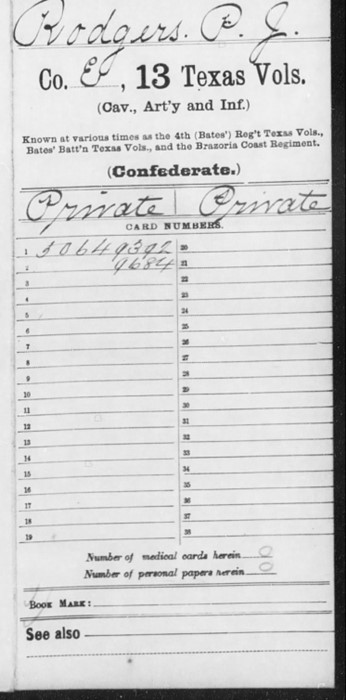 Rodgers. P. J.
Co. E, 13 Texas Vols.
(Cav., Art'y and Inf.)
Known at various times as the 4th (Bates') Reg't Texas Vols.,
Bates' Batt'n Texas Vols., and the Brazoria Coast Regiment.
(Confederate.)
Private | Private
CARD NUMBERS.
1 50649392 20
2 9684 21
3 22
4 23
5 24
6 25
7 26
8 27
9 28
10 29
11 30
12 31
13 32
14 33
15 34
16 35
17 36
18 37
19 38
Number of medical cards herein 0
Number of personal papers herein 0
BOOK MARK:
See also